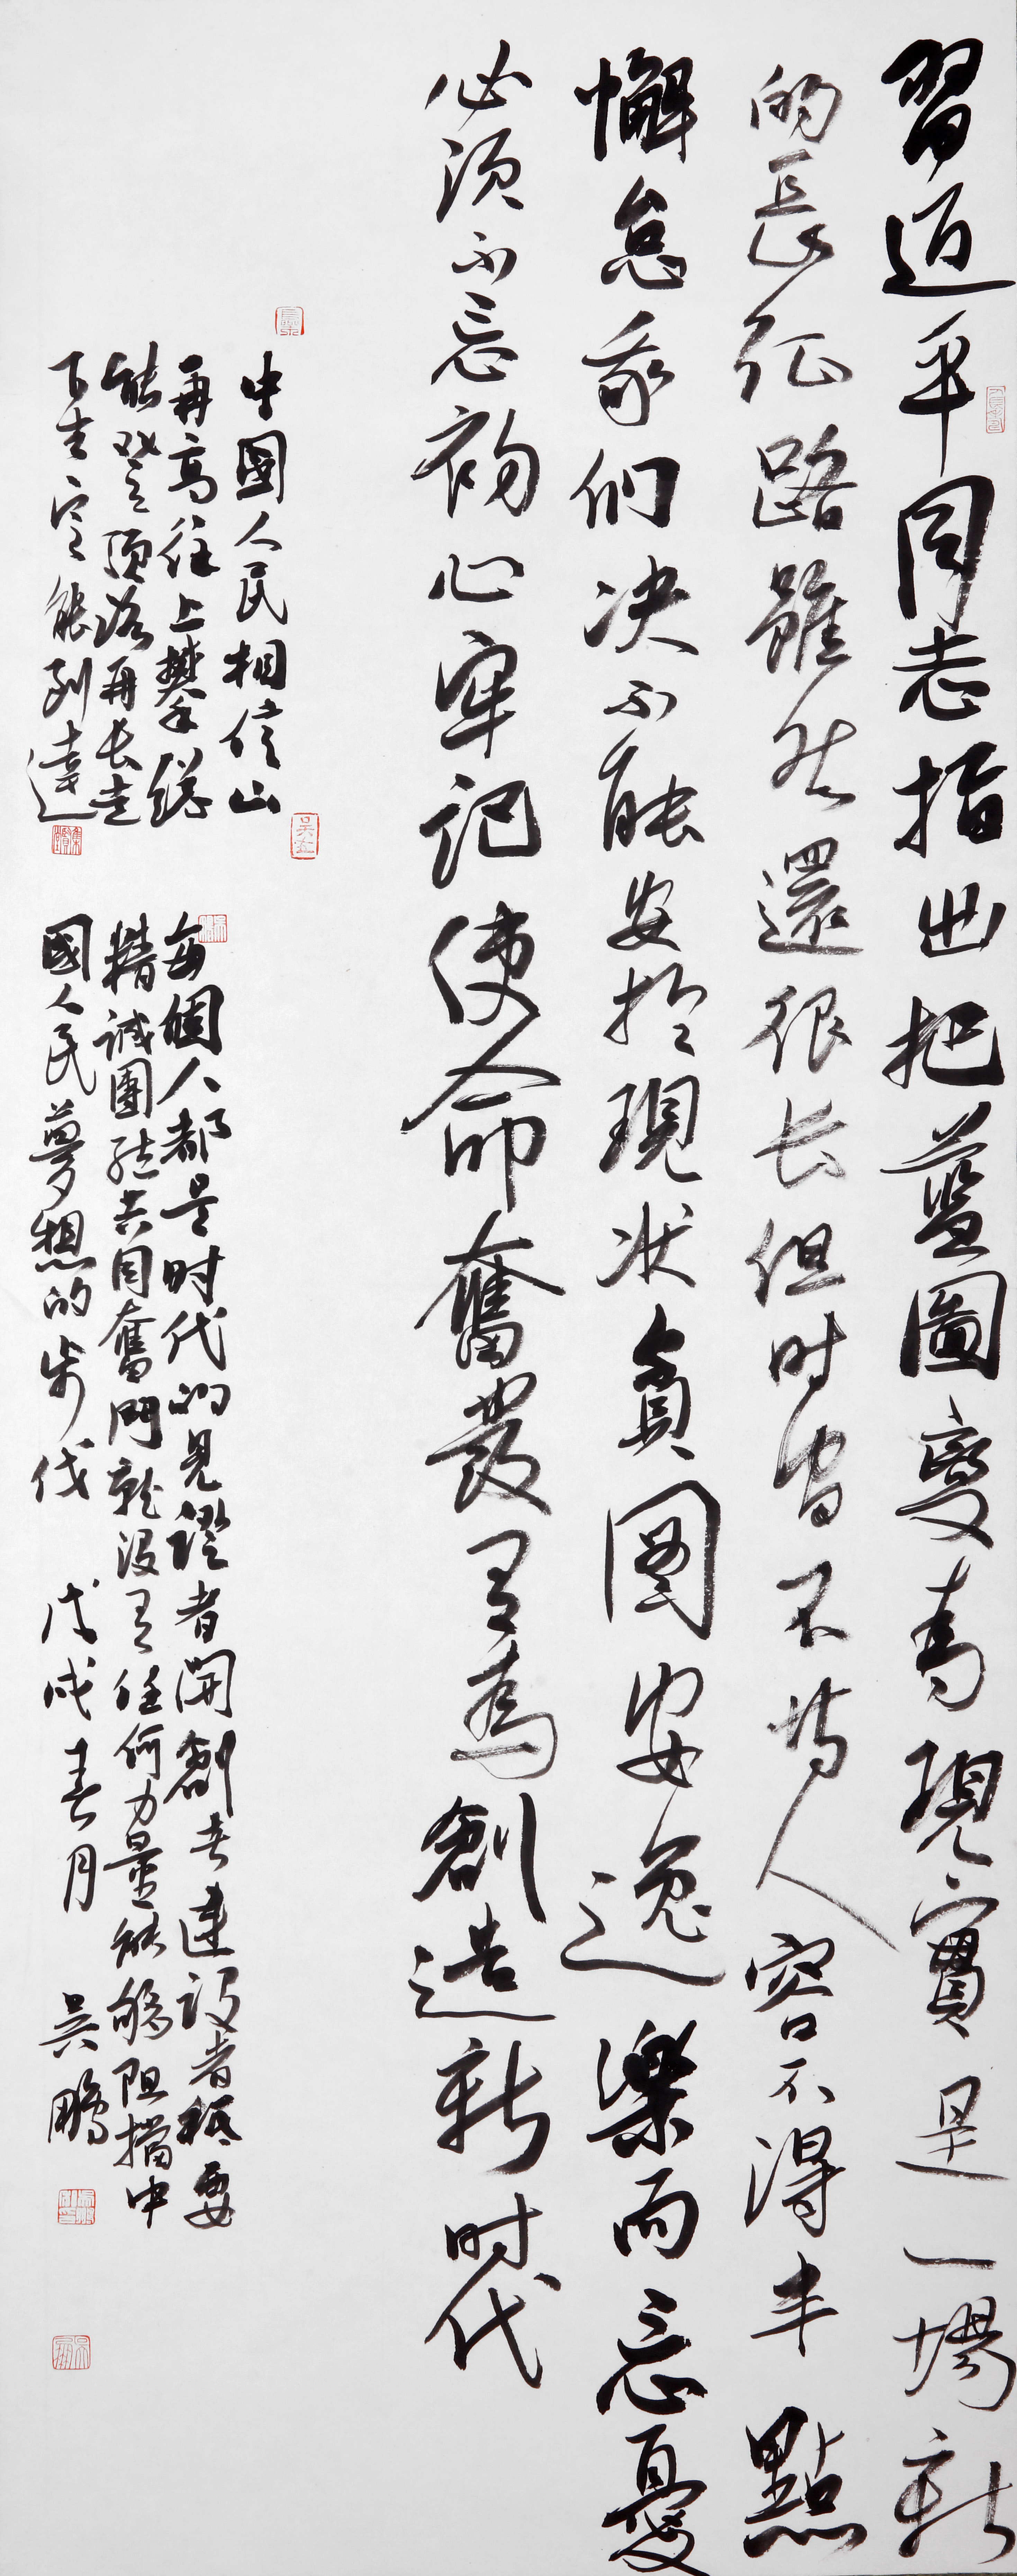 習近平同志指出把藍圖變為現實是一場新
的長征路雖然還很长但时间不等人容不得半點
懈怠我们决不能安於現状貪圖安逸樂而忘憂
必须不忘初心牢记使命奮發有為創造新时代
中國人民相信山
再高往上攀總
能登顶路再长走
下去定能到達
每個人都是时代的見證者開創者建设者祇要
精誠團結共同奮鬥就没有任何力量能够阻擋中
國人民夢想的步伐 戊戌春月 吴鵬